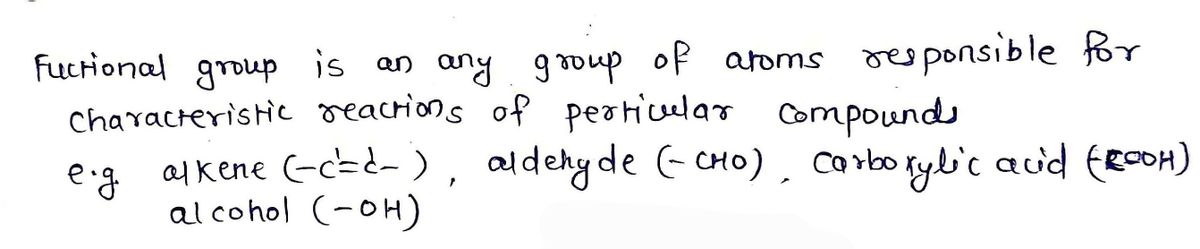 Fuctional group is an any group of atoms responsible for
characteristic reactions of perticular compounds
e.g. alkene (-C=C-), aldehyde (-CHO), carboxylic acid (-COOH)
alcohol (-OH)